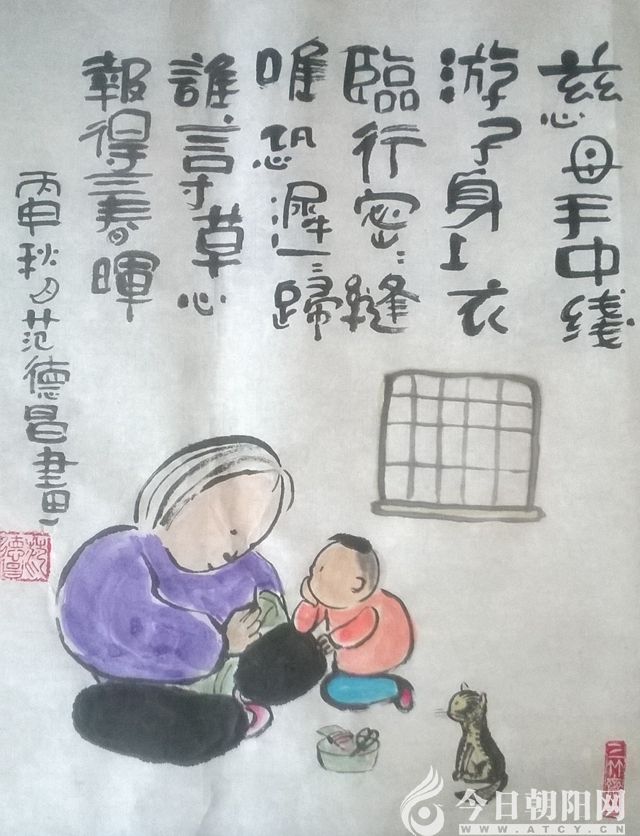 慈母手中线
游子身上衣
臨行密〻縫
唯恐遲〻歸
誰言寸草心
報得三春暉
丙申秋月范德昌畫
今日朝阳网
WWW.ATCY.CN